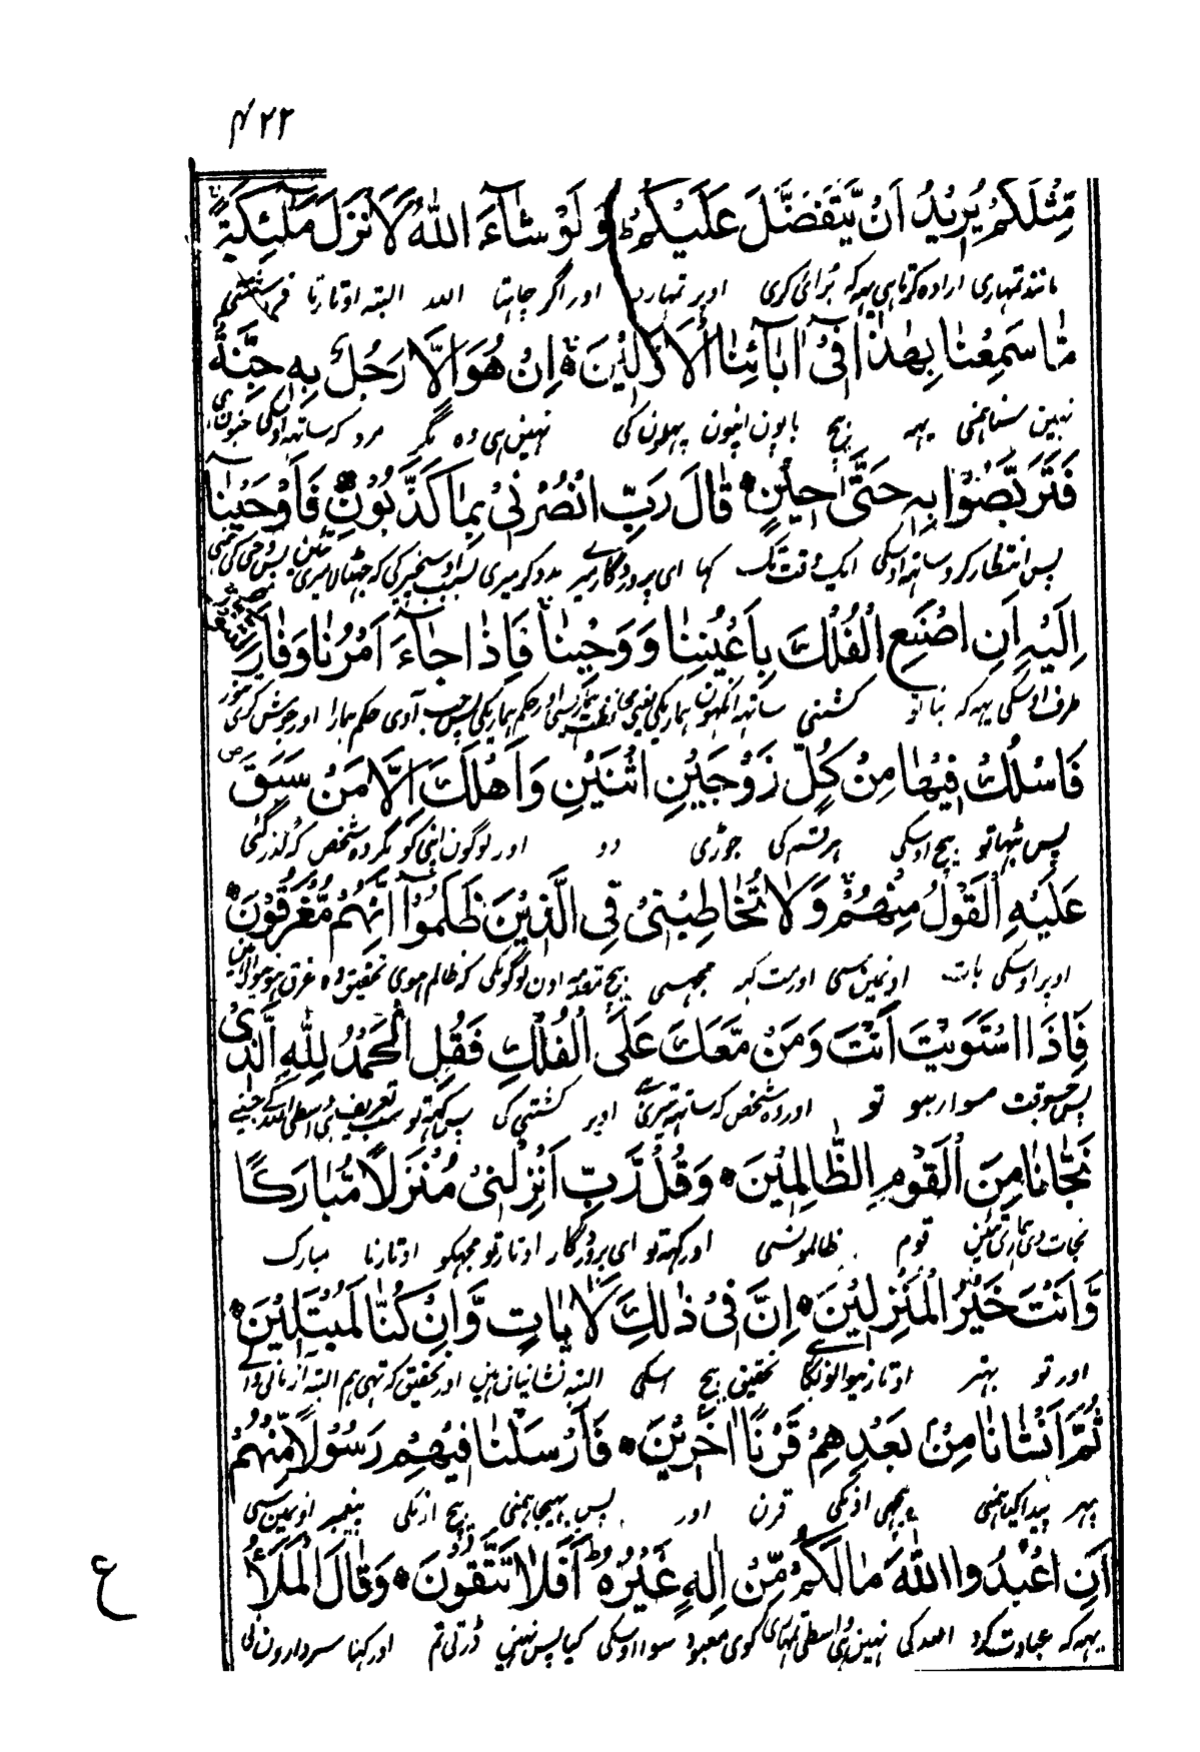 ۴۲۲
مِّثْلُكُمْ يُرِيْدُ اَنْ يَّتَفَضَّلَ عَلَيْكُمْ ؕ وَلَوْ شَآءَ اللّٰهُ لَاَنْزَلَ مَلٰٓئِكَةً
مانند تمہاری ارادہ کرتا ہی یہہ کہ بڑائی کری اوپر تمہاری اور اگر چاہتا اللہ البتہ اوتارتا فرشتی
مَّا سَمِعْنَا بِهٰذَا فِىْٓ اٰبَآئِنَا الْاَوَّلِيْنَ ۚ اِنْ هُوَ اِلَّا رَجُلٌ بِهٖ جِنَّةٌ
نہین سنا ہمنی یہہ بیچ باپون اپنون پہلون کی نہین ہی وہ مگر مرد کہ ساتہہ اوسکی جنون ہی
فَتَرَبَّصُوْا بِهٖ حَتّٰى حِيْنٍ ۞ قَالَ رَبِّ انْصُرْنِىْ بِمَا كَذَّبُوْنِ ۞ فَاَوْحَيْنَآ
پس انتظار کرو ساتہہ اوسکی ایک وقت تک کہا ای پروردگار میر مدد کر میری بسبب اوسچیز کی کہ جہٹلایا میری تئین پس وحی کی ہمنی
اِلَيْهِ اَنِ اصْنَعِ الْفُلْكَ بِاَعْيُنِنَا وَوَحْيِنَا فَاِذَا جَآءَ اَمْرُنَا وَفَارَ التَّنُّوْرُ
طرف اوسکی یہہ کہ بنا تو کشتی ساتہہ آنکہون ہماریکی یعنی محافظت ہماری اور حکم ہماریکی پس جب آوی حکم ہمارا اور جوش کری تنور
فَاسْلُكْ فِيْهَا مِنْ كُلٍّ زَوْجَيْنِ اثْنَيْنِ وَاَهْلَكَ اِلَّا مَنْ سَبَقَ
پس بٹہا تو بیچ اوسکی ہر قسم کی جوڑی دو اور لوگون اپنی کو مگر وہ شخص کہ گذر گئی
عَلَيْهِ الْقَوْلُ مِنْهُمْ ۚ وَلَا تُخَاطِبْنِىْ فِى الَّذِيْنَ ظَلَمُوْا ۚ اِنَّهُمْ مُّغْرَقُوْنَ ۞
اوپر اوسکی بات اونمین سی اور مت کہہ مجہسی بیچ مقدمہ اون لوگونکی کہ ظالم ہوی تحقیق وہ غرق ہونیوالی ہین
فَاِذَا اسْتَوَيْتَ اَنْتَ وَمَنْ مَّعَكَ عَلَى الْفُلْكِ فَقُلِ الْحَمْدُ لِلّٰهِ الَّذِىْ
پس جسوقت سوار ہو تو اور وہ شخص کہ ساتہہ تیری اوپر کشتی کی پس کہہ تو سب تعریف ہی واسطی اللہ کی جسنی
نَجّٰىنَا مِنَ الْقَوْمِ الظّٰلِمِيْنَ ۞ وَقُلْ رَّبِّ اَنْزِلْنِىْ مُنْزَلًا مُّبٰرَكًا
نجات دی ہماری تئین قوم ظالمونسی اور کہہ تو ای پروردگار اوتار تو مجہکو اوتارنا مبارک
وَّاَنْتَ خَيْرُ الْمُنْزِلِيْنَ ۞ اِنَّ فِىْ ذٰلِكَ لَاٰيٰتٍ وَّاِنْ كُنَّا لَمُبْتَلِيْنَ ۞
اور تو بہتر اوتارنیوالونکا تحقیق بیچ اسکی البتہ نشانیان ہین اور تحقیق کہ تہی ہم البتہ آزمانی والی
ثُمَّ اَنْشَاْنَا مِنْۢ بَعْدِهِمْ قَرْنًا اٰخَرِيْنَ ۞ فَاَرْسَلْنَا فِيْهِمْ رَسُوْلًا مِّنْهُمْ
پہر پیدا کیا ہمنی پیچہی اونکی قرن اور پس بہیجا ہمنی بیچ اونکی پیغمبر اونمین سی
اَنِ اعْبُدُوا اللّٰهَ مَا لَكُمْ مِّنْ اِلٰهٍ غَيْرُهٗ ؕ اَفَلَا تَتَّقُوْنَ ۞ وَقَالَ الْمَلَاُ
ع
یہہ کہ عبادت کرو اللہ کی نہین ہی واسطی تمہاری کوی معبود سوا اوسکی کیا پس نہین ڈرتی تم اور کہا سردارون نی